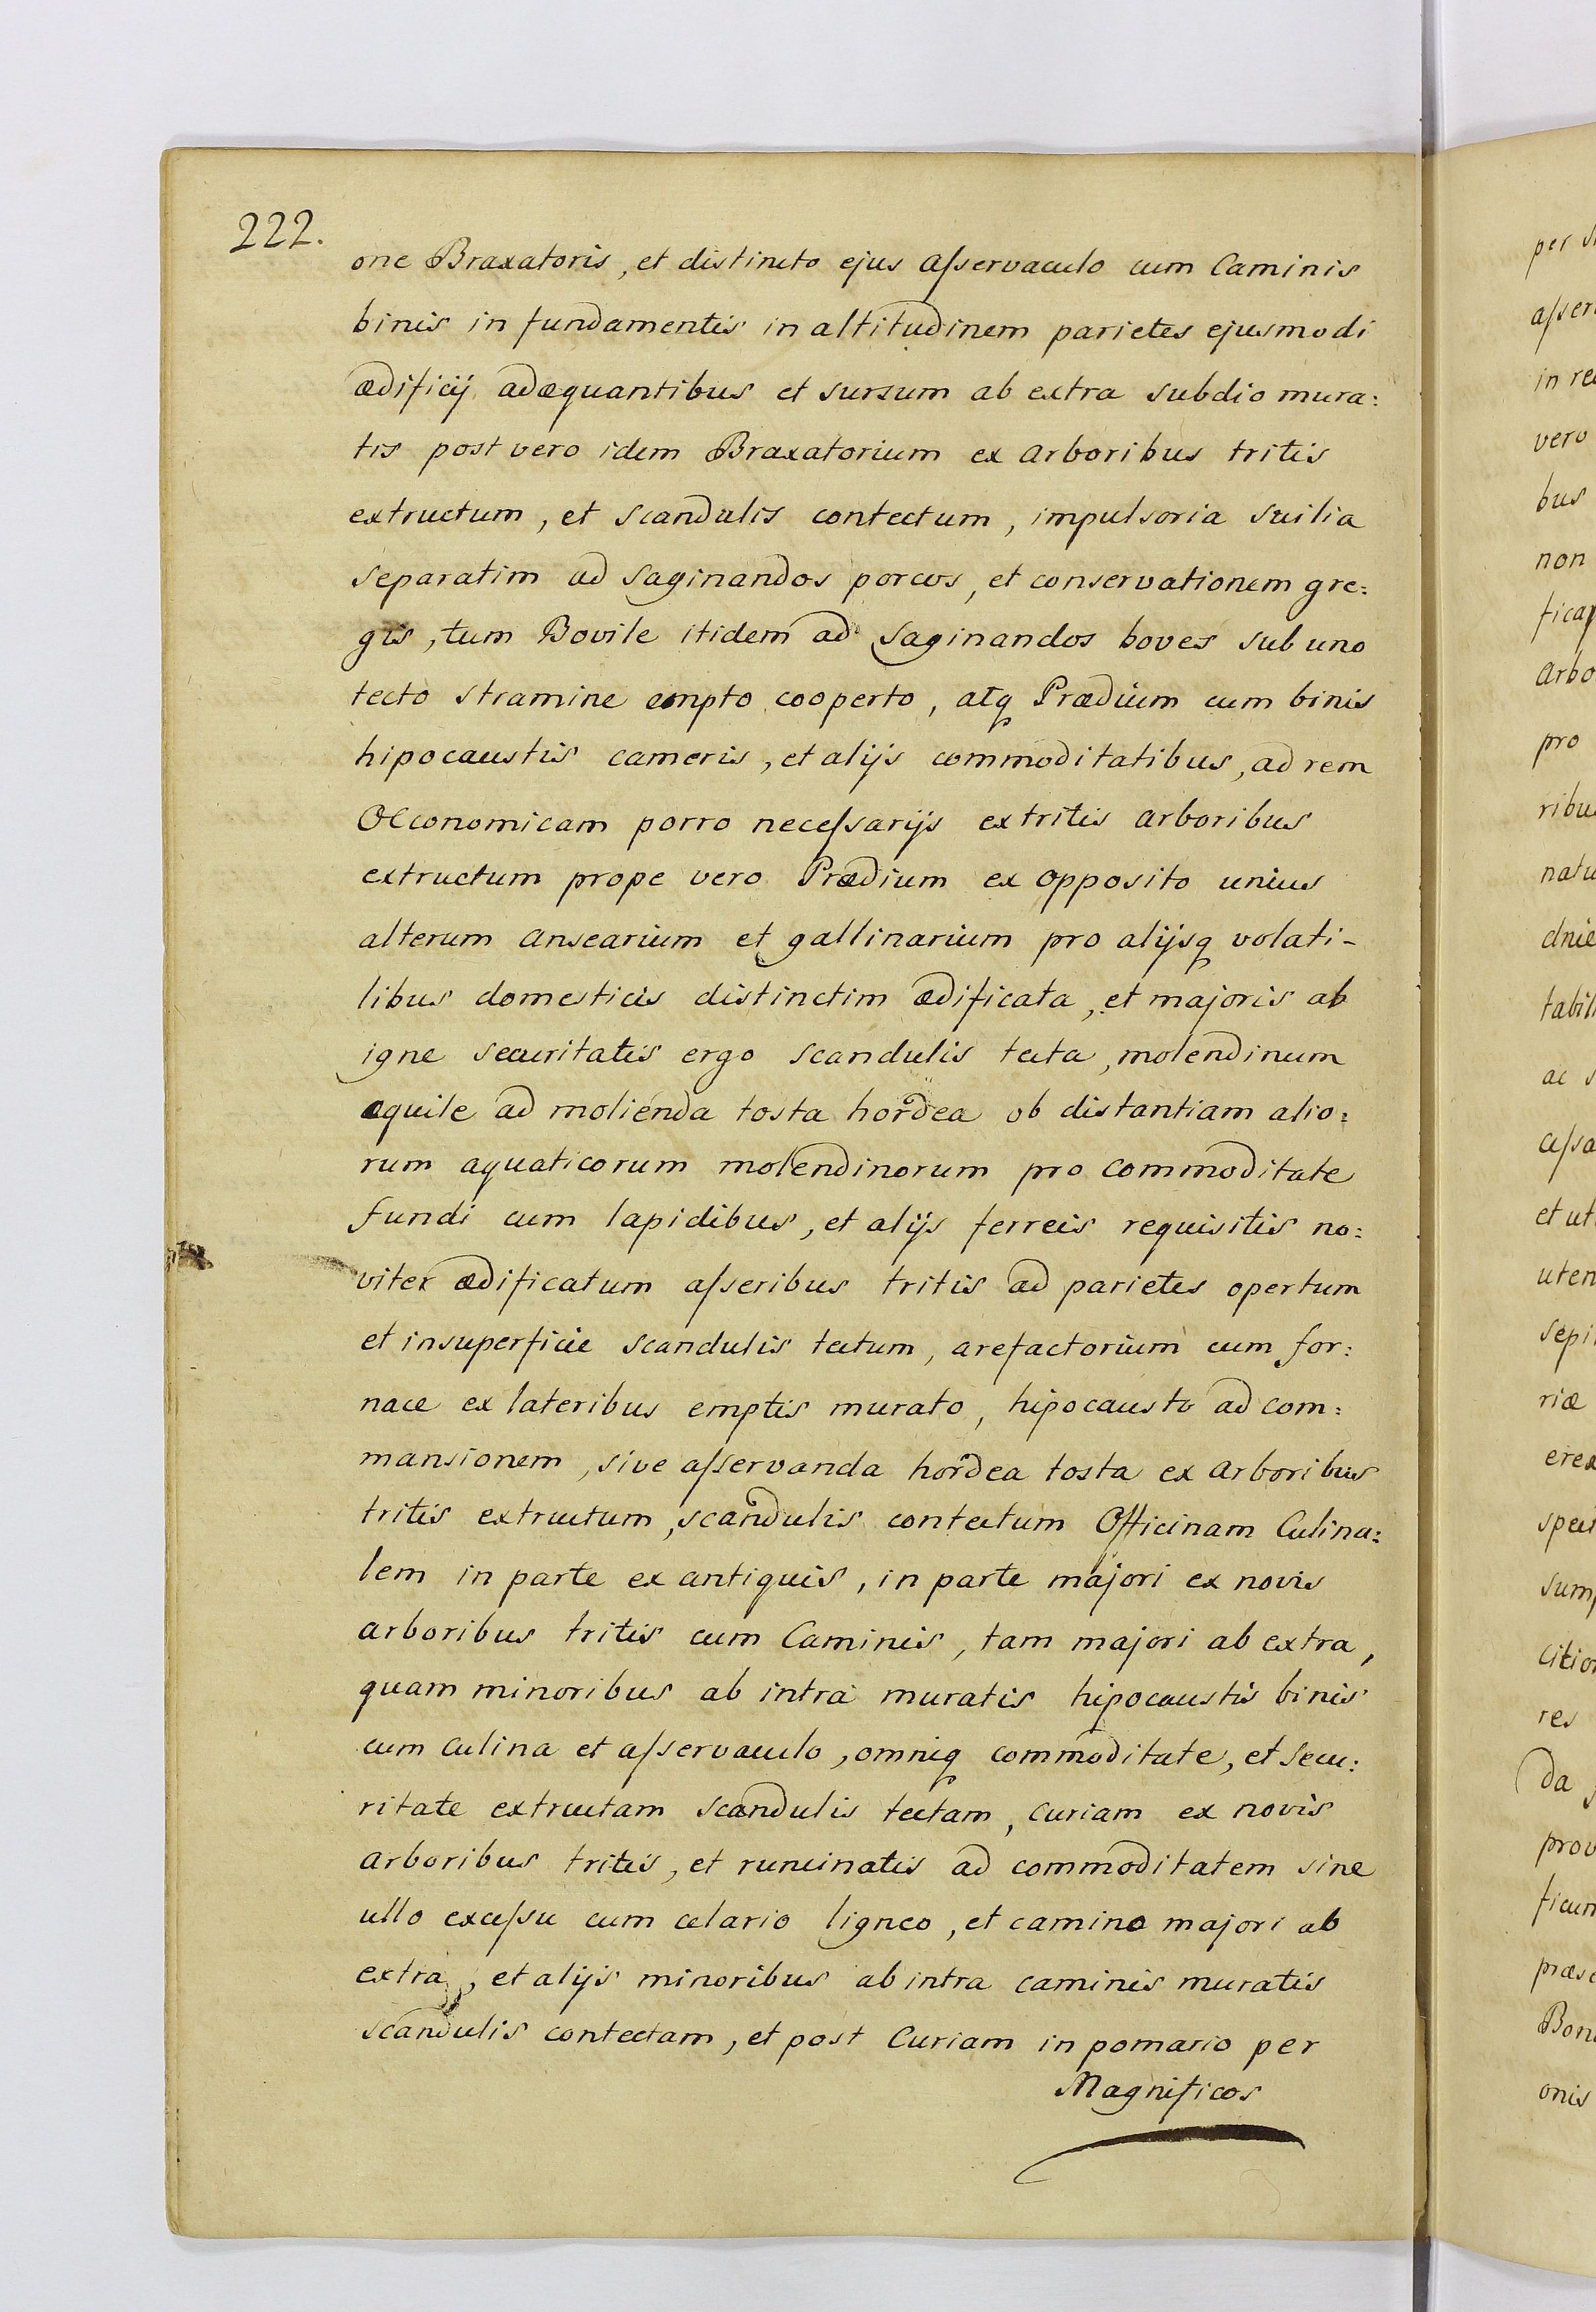 222.
one Braxatoris, et distincto ejus asservaculo cum Caminis
binis in fundamentis in altitudinem parietes ejusmodi
ædificij adæquantibus et sursum ab extra subdio mura:
tis post vero idem Braxatorium ex arboribus tritis
extructum, et scandulis contectum, impulsoria suilia
separatim ad saginandos porcos, et conservationem gre:
gis, tum Bovile itidem ad saginandos boves sub uno
tecto stramine empto cooperto, atq Prædium cum binis
hipocaustis cameris, et alijs commoditatibus, ad rem
Oeconomicam porro necessarijs ex tritis arboribus
extructum prope vero Prædium ex opposito unius
alterum ansearium et gallinarium pro alijsq volati-
libus domesticis distinctim ædificata, et majoris ab
igne securitatis ergo scandulis tecta, molendinum
equile ad molienda tosta hordea ob distantiam alio:
rum aquaticorum molendinorum pro commoditate
fundi cum lapidibus, et alijs ferreis requisitis no:
viter ædificatum asseribus tritis ad parietes opertum
et insuperficie scandulis tectum, arefactorium cum for:
nace ex lateribus emptis murato, hipocausto ad com:
mansionem, sive asservanda hordea tosta ex arboribus
tritis extructum, scandulis contectum Officinam Culina:
lem in parte ex antiquis, in parte majori ex novis
arboribus tritis cum Caminis, tam majori ab extra,
quam minoribus ab intra muratis hipocaustis binis
cum culina et asservaculo, omniq commoditate, et secu:
ritate extructam scandulis tectam, curiam ex novis
arboribus tritis, et runcinatis ad commoditatem sine
ullo excessu cum celario ligneo, et camino majori ab
extra, et alijs minoribus ab intra caminis muratis
scandulis contectam, et post Curiam in pomario per
Magnificos
per
in re
vero
bus
non
arbo
pro
ribus
et ut
riæ
res
da
onis